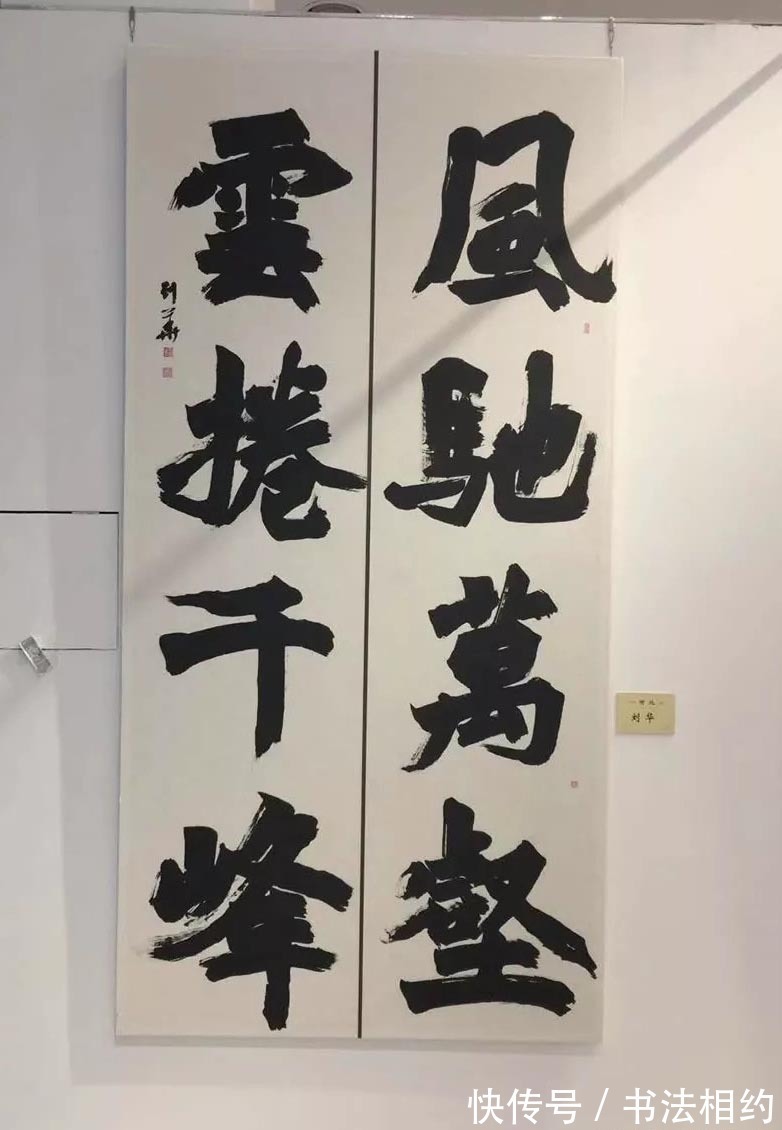 風馳萬壑
雲捲千峰
刘华
刘华
快传号 / 书法相约